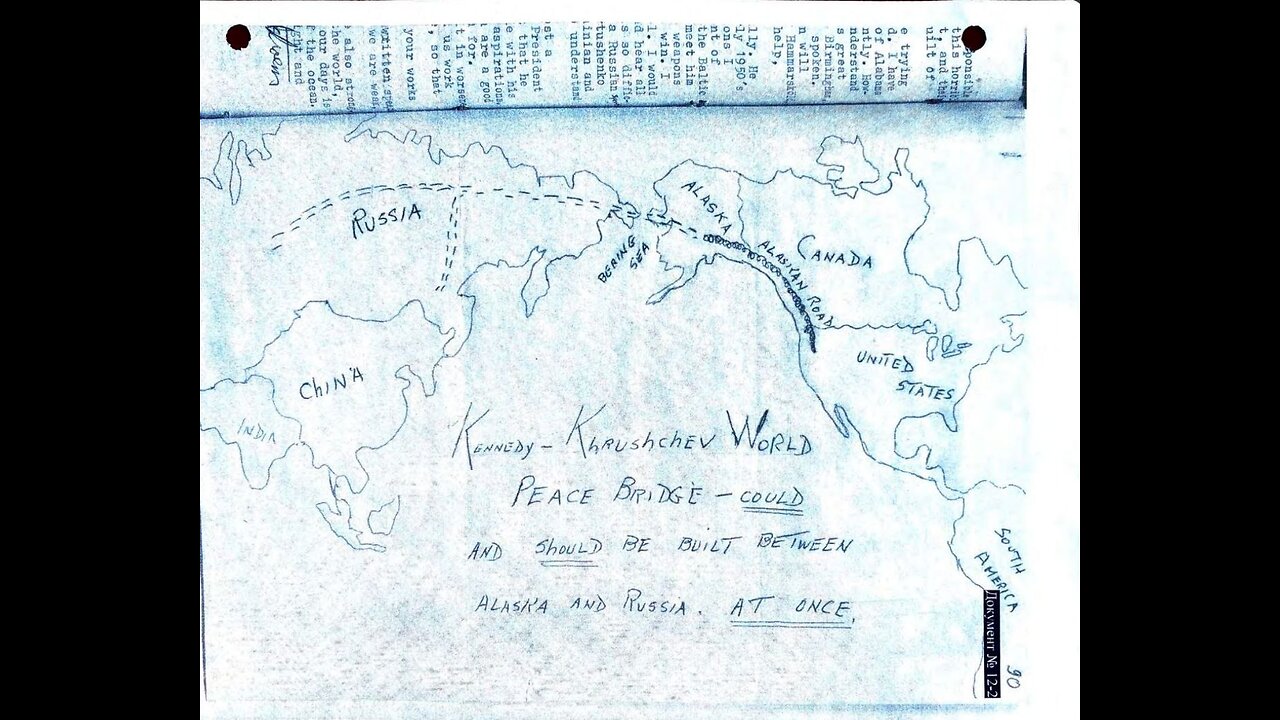 this horrib
t, and the
uilt of
e trying
d. I have
of Alabama
ntly. How
nderstand
s great
Birmingham,
spoken.
n will
help,
lly. He
ly 1950's
ons I
nt of
the Baltic
meet him
weapons
win. I
l. I would
d hear all
s so diffi-
a Russian
tushenko
inian and
understand
st a
President
that he
e with his
aspirations,
are a good
for.
t in worse
us work
, so that
your works
written
we are weak
also
he world,
our days is
the ocean.
ght and
RUSSIA
ALASKA
BERING
SEA
ALASKAN ROAD
CANADA
UNITED
STATES
CHINA
INDIA
KENNEDY - KHRUSHCHEV WORLD
PEACE BRIDGE - COULD
AND SHOULD BE BUILT BETWEEN
ALASKA AND RUSSIA. AT ONCE.
SOUTH
AMERICA
Документ № 12-2
90